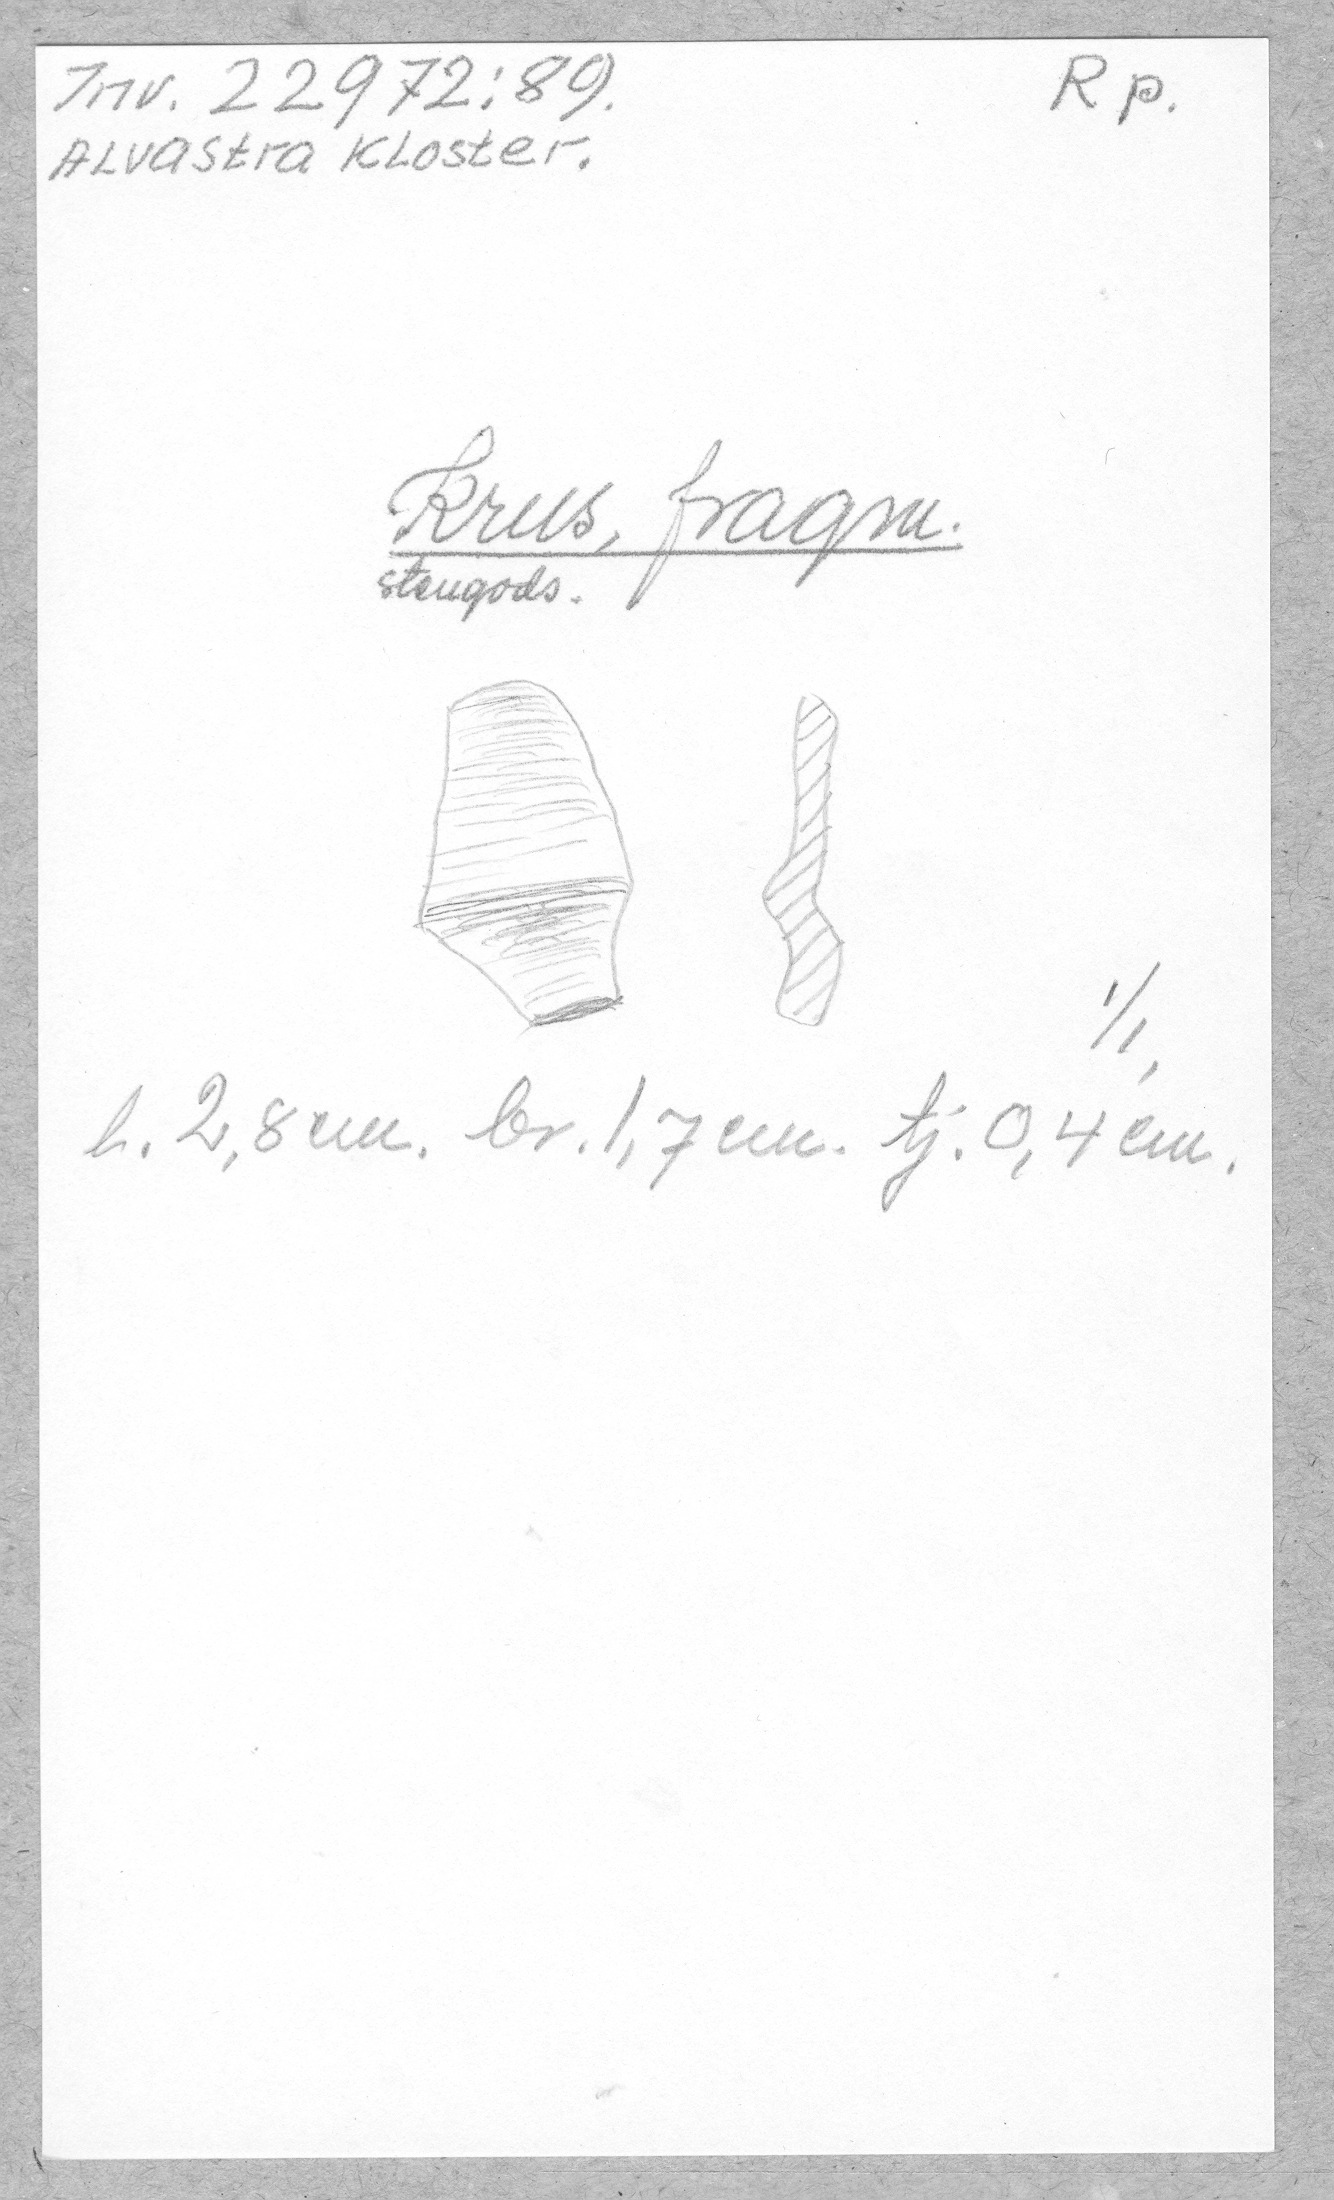 Inv. 22972:89. Rp.
Alvastra Kloster.
Krus, fragm.
stengods.
1/1.
l. 2,8 cm. br. 1,7 cm. tj. 0,4 cm.